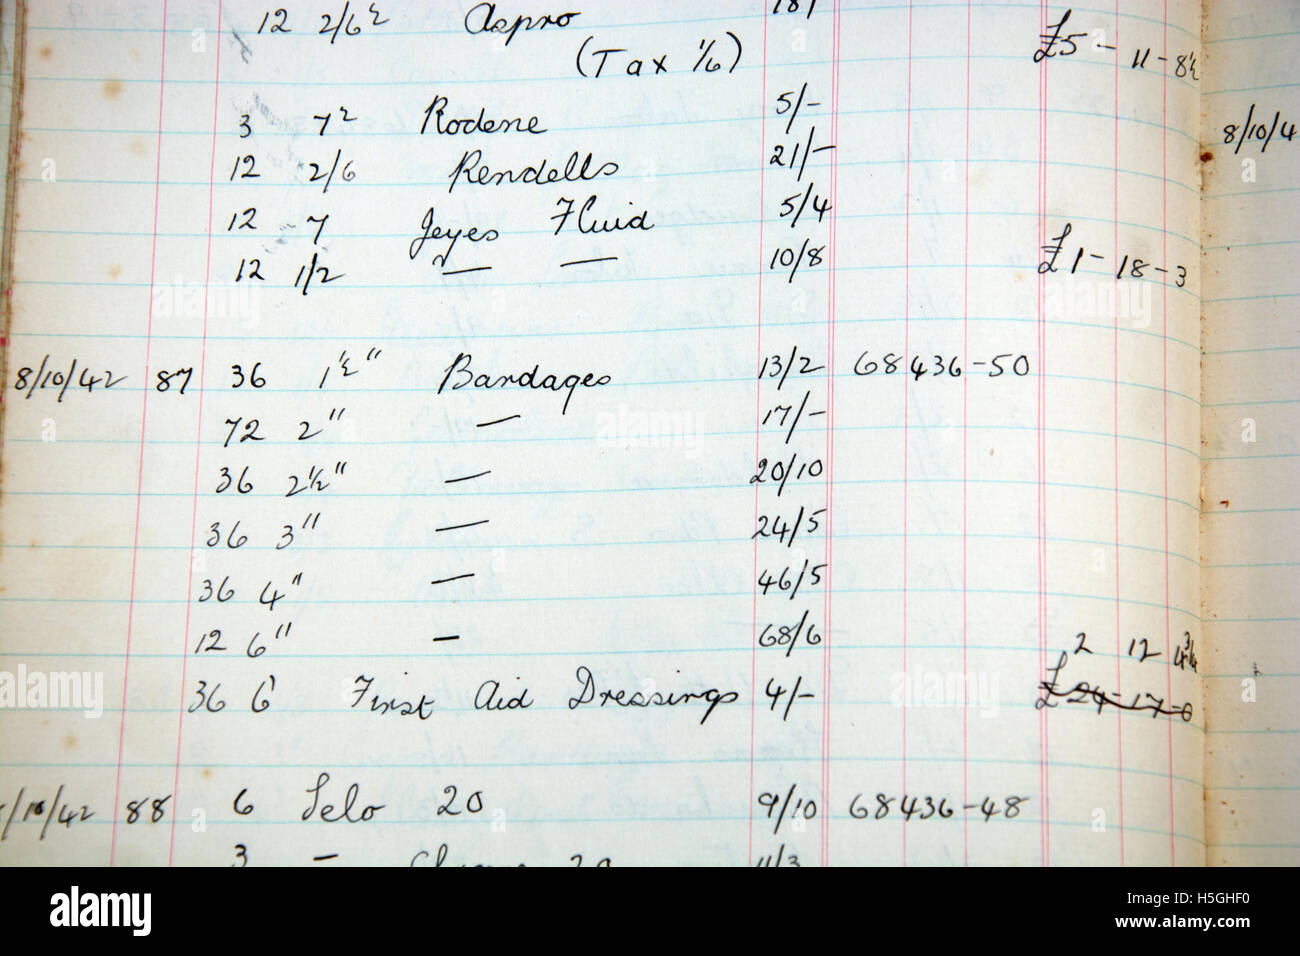 12 2/6½ Aspro 18/
(Tax 1/6) £5 - 11 - 8½
3 7½ Rodene 5/-
8/10/4
12 2/6 Rendells 21/-
12 7 Jeyes Fluid 5/4
12 1/2 — — 10/8 £1 - 18 - 3
8/10/42 87 36 1½" Bandages 13/2 68436-50
72 2" — 17/-
36 2½" — 20/10
36 3" — 24/5
36 4" — 46/5
12 6" — 68/6
2 12 4¾
36 6 First Aid Dressings 4/- £24-17-0
/10/42 88 6 Selo 20 9/10 68436-48
3 — 20 11/3
alamy
Image ID: H5GHF0
www.alamy.com